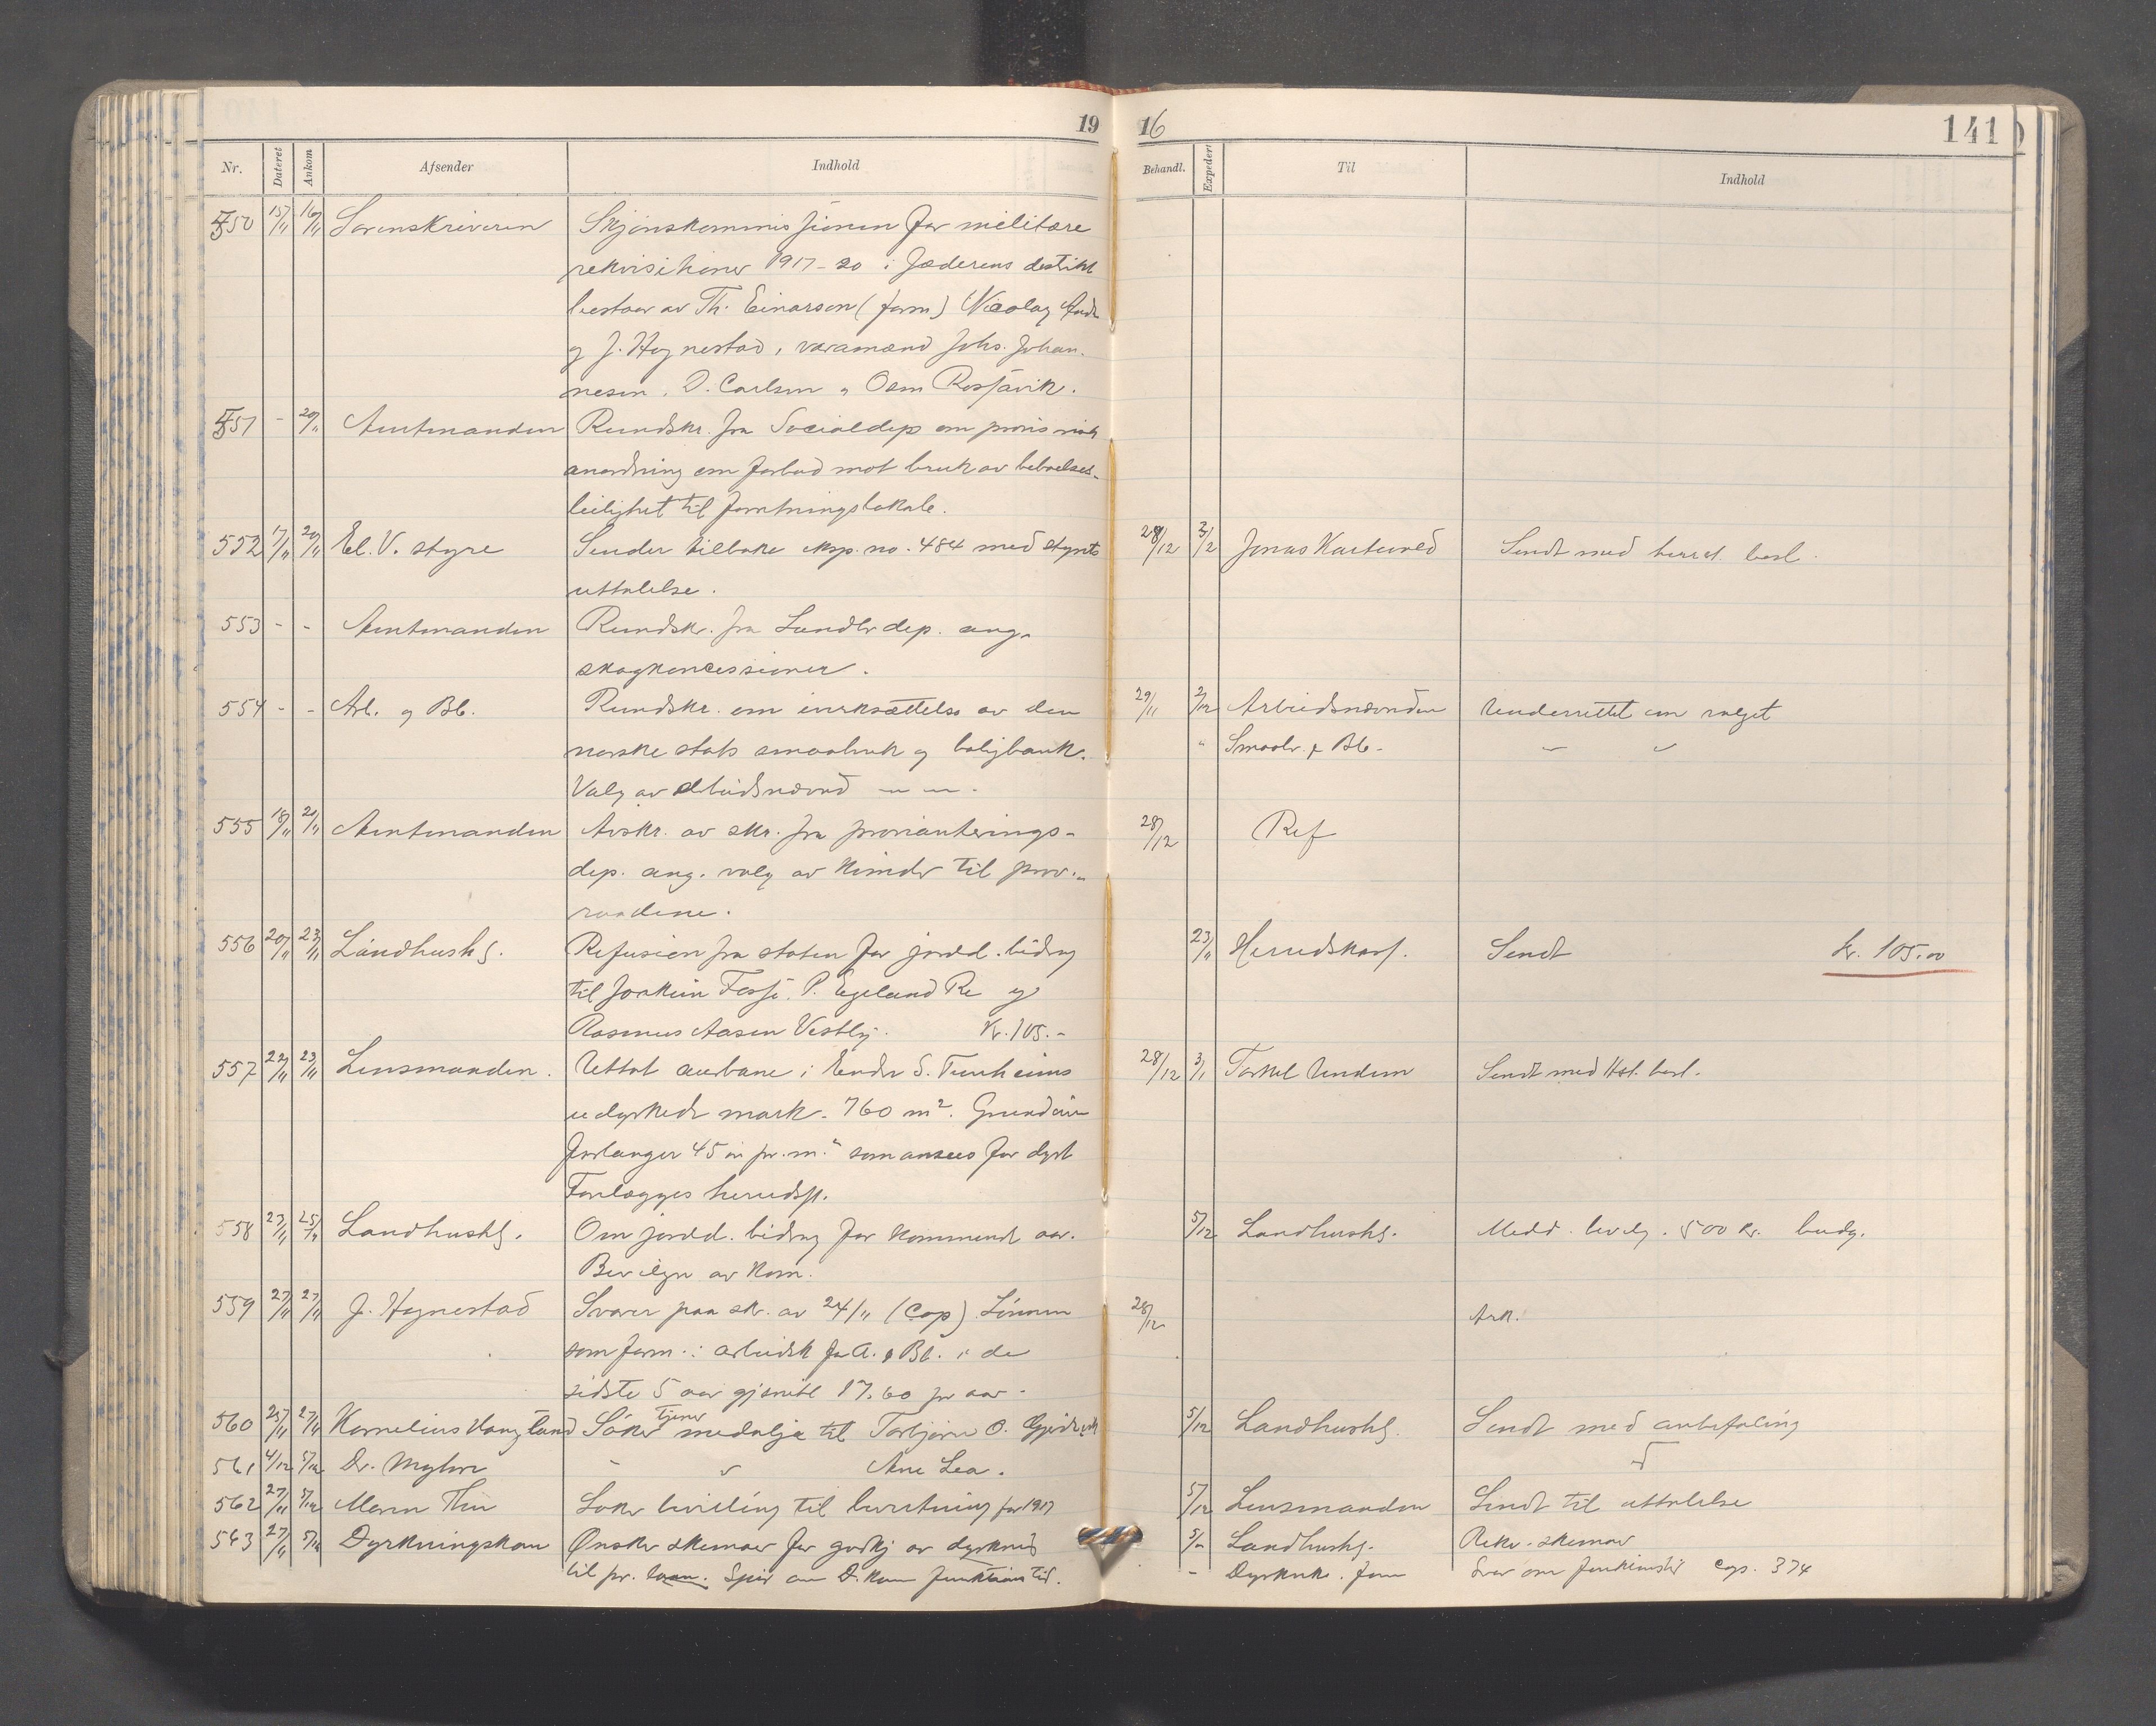 19 16 141
Nr. Dateret Ankom Afsender Indhold Behandl. Expedert Til Indhold
550 15/11 16/11 Sorenskriveren Skjönskommissionen for militære
rekvisitioner 1917-20 i Jæderens
bestaar av Th. Einarson (form) Nicolay
og J. Hognestad, varamænd Johs. Johan-
nesen, D. Carlsen
551 - 20/11 Amtmanden Rundskr. fra Socialdep om provisorisk
anordning om forbud mot bruk av beboelses-
leilighet til forretningslokale.
552 17/11 20/11 El. V. styre Sender tilbake eksp. no. 484 med styrets 28/12 Jonas Sendt med herred. besl.
uttalelse.
553 - - Amtmanden Rundskr. fra Landbr dep. ang.
skogkoncessioner.
554 - - Arb. og Bb. Rundskr. om iverksættelse av den 29/11 2/12 Arbeidsnævnden Underrettet om valget
norske stats smaabruk og boligbank. " Smaabr. & Bb. - "
Valg av arbeidsnævnd — " —
555 18/11 21/11 Amtmanden Avskr. av skr. fra provianterings- 28/12 Ref
dep. ang. valg av kvinder til prov.-
raadene.
556 20/11 23/11 Landhush s. Refusion fra staten for jordd. bidrag 23/11 Herredskas. Sendt kr. 105.00
til Joakim P. Egeland Re og
Rasmus Aasen Vestly. Kr. 105.-
557 22/11 23/11 Lensmanden. Uttat i Endre S. Tunheims 28/12 3/1 Torkel Undem Sendt med Hst. besl.
udyrkede mark. 760 m². Grundeier
forlanger 45 øre pr. m.² som ansees for dyrt
Forelægges herredsst.
558 23/11 25/11 Landhushs. Om jordd. bidrag for kommende aar. 5/12 Landhushs. Medd. bevilg. 500 kr. budg.
Bevilgn av kom.
559 27/11 27/11 J. Hognestad Svarer paa skr. av 24/11 (Cop) Lönnen 28/12 Ark.
som form. i arbeidsk for A. & Bb. i de
sidste 5 aar gjsnitl 17.60 pr aar.
560 25/11 27/11 Kornelius Haugland Söker tjener medalje til Torbjørn O. 5/12 Landhushs. Sendt med anbefaling
561 4/12 5/12 Dr. Myhre - " Ane Lea.
562 27/11 5/12 Maren Søker bevilling til bevertning for 1917 5/12 Lensmanden Sendt til uttalelse
563 27/11 5/12 Dyrkningskom Ønsker skemaer for godkj av dyrkning 5/12 Landhushs. Rekv. skemaer
til pr. Spør om D. kom funktionstid. - Dyrknk. form Svar om funktionstid Cop. 374